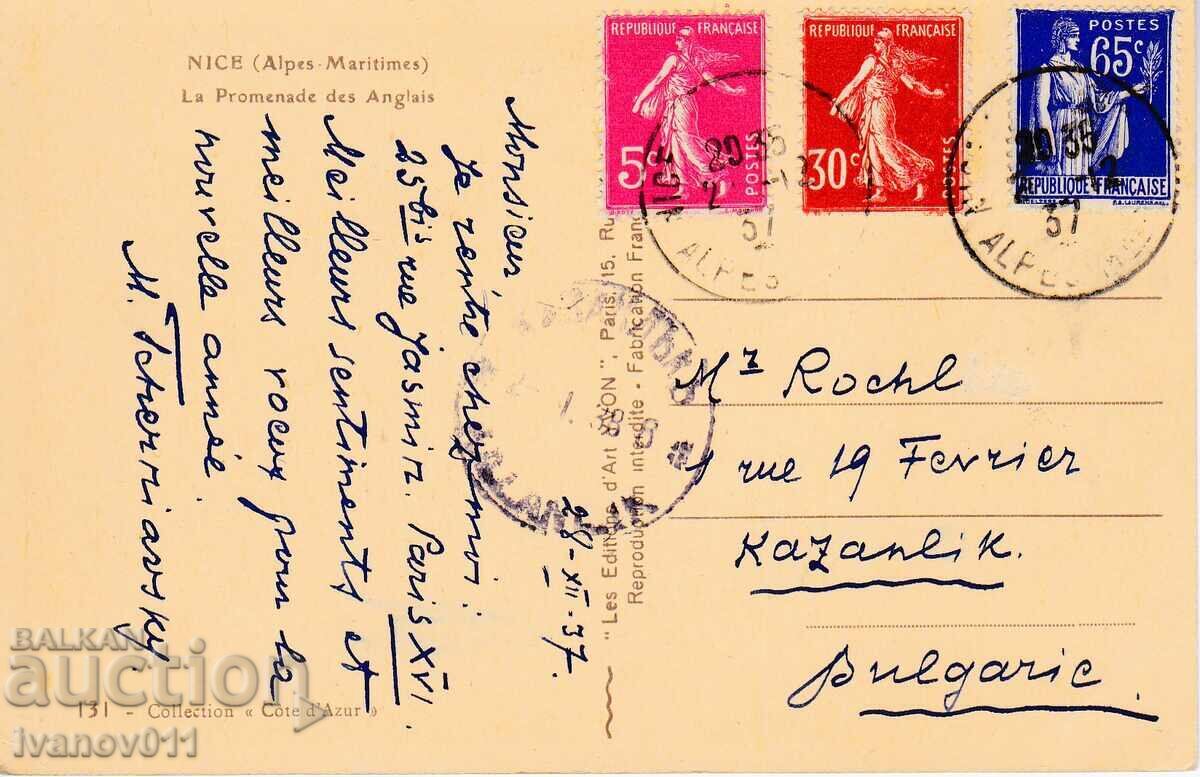 NICE (Alpes-Maritimes)
La Promenade des Anglais
Monsieur
Je rentre chez moi:
25 bis rue Jasmin. Paris XVI.
Meilleurs sentiments et
meilleurs voeux pour la
nouvelle année.
M. Tcherniavsky.
28-XII-37.
131 - Collection « Côte d'Azur »
"Les Editions d'Art YVON", Paris, 15, Ru
Reproduction Interdite - Fabrication Franç
REPUBLIQUE FRANÇAISE
5c
POSTES
REPUBLIQUE FRANÇAISE
30c
POSTES
POSTES
65c
REPUBLIQUE FRANÇAISE
NICE
20 35
2 -12
37
ALPES
20 35
-12
37
ALPES M
КАЗАНЛЪКЪ
KAZANLIK
Mr Rochl
1 rue 19 Fevrier
Kazanlik.
Bulgarie.
BALKAN
auction
ivanov011